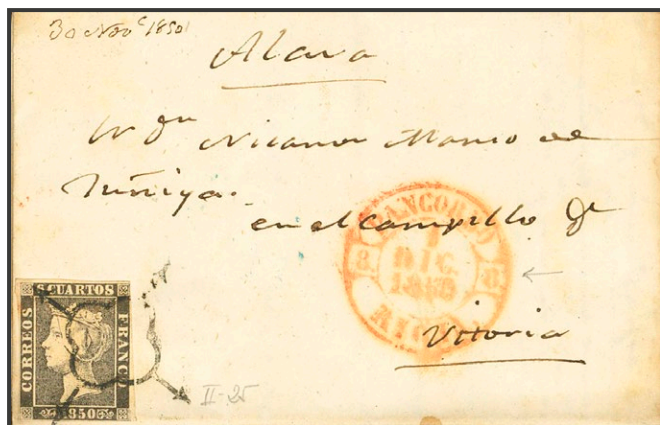 30 Novᵉ 1850
Alava
Sr Dn Nicanor Manso de
Zuñiga.
en el Campillo De
PANCORBO
1
DIC.
1850
8. 8.
RIOJA
Vitoria
6 CUARTOS
CORREOS FRANCO
1850
II-25